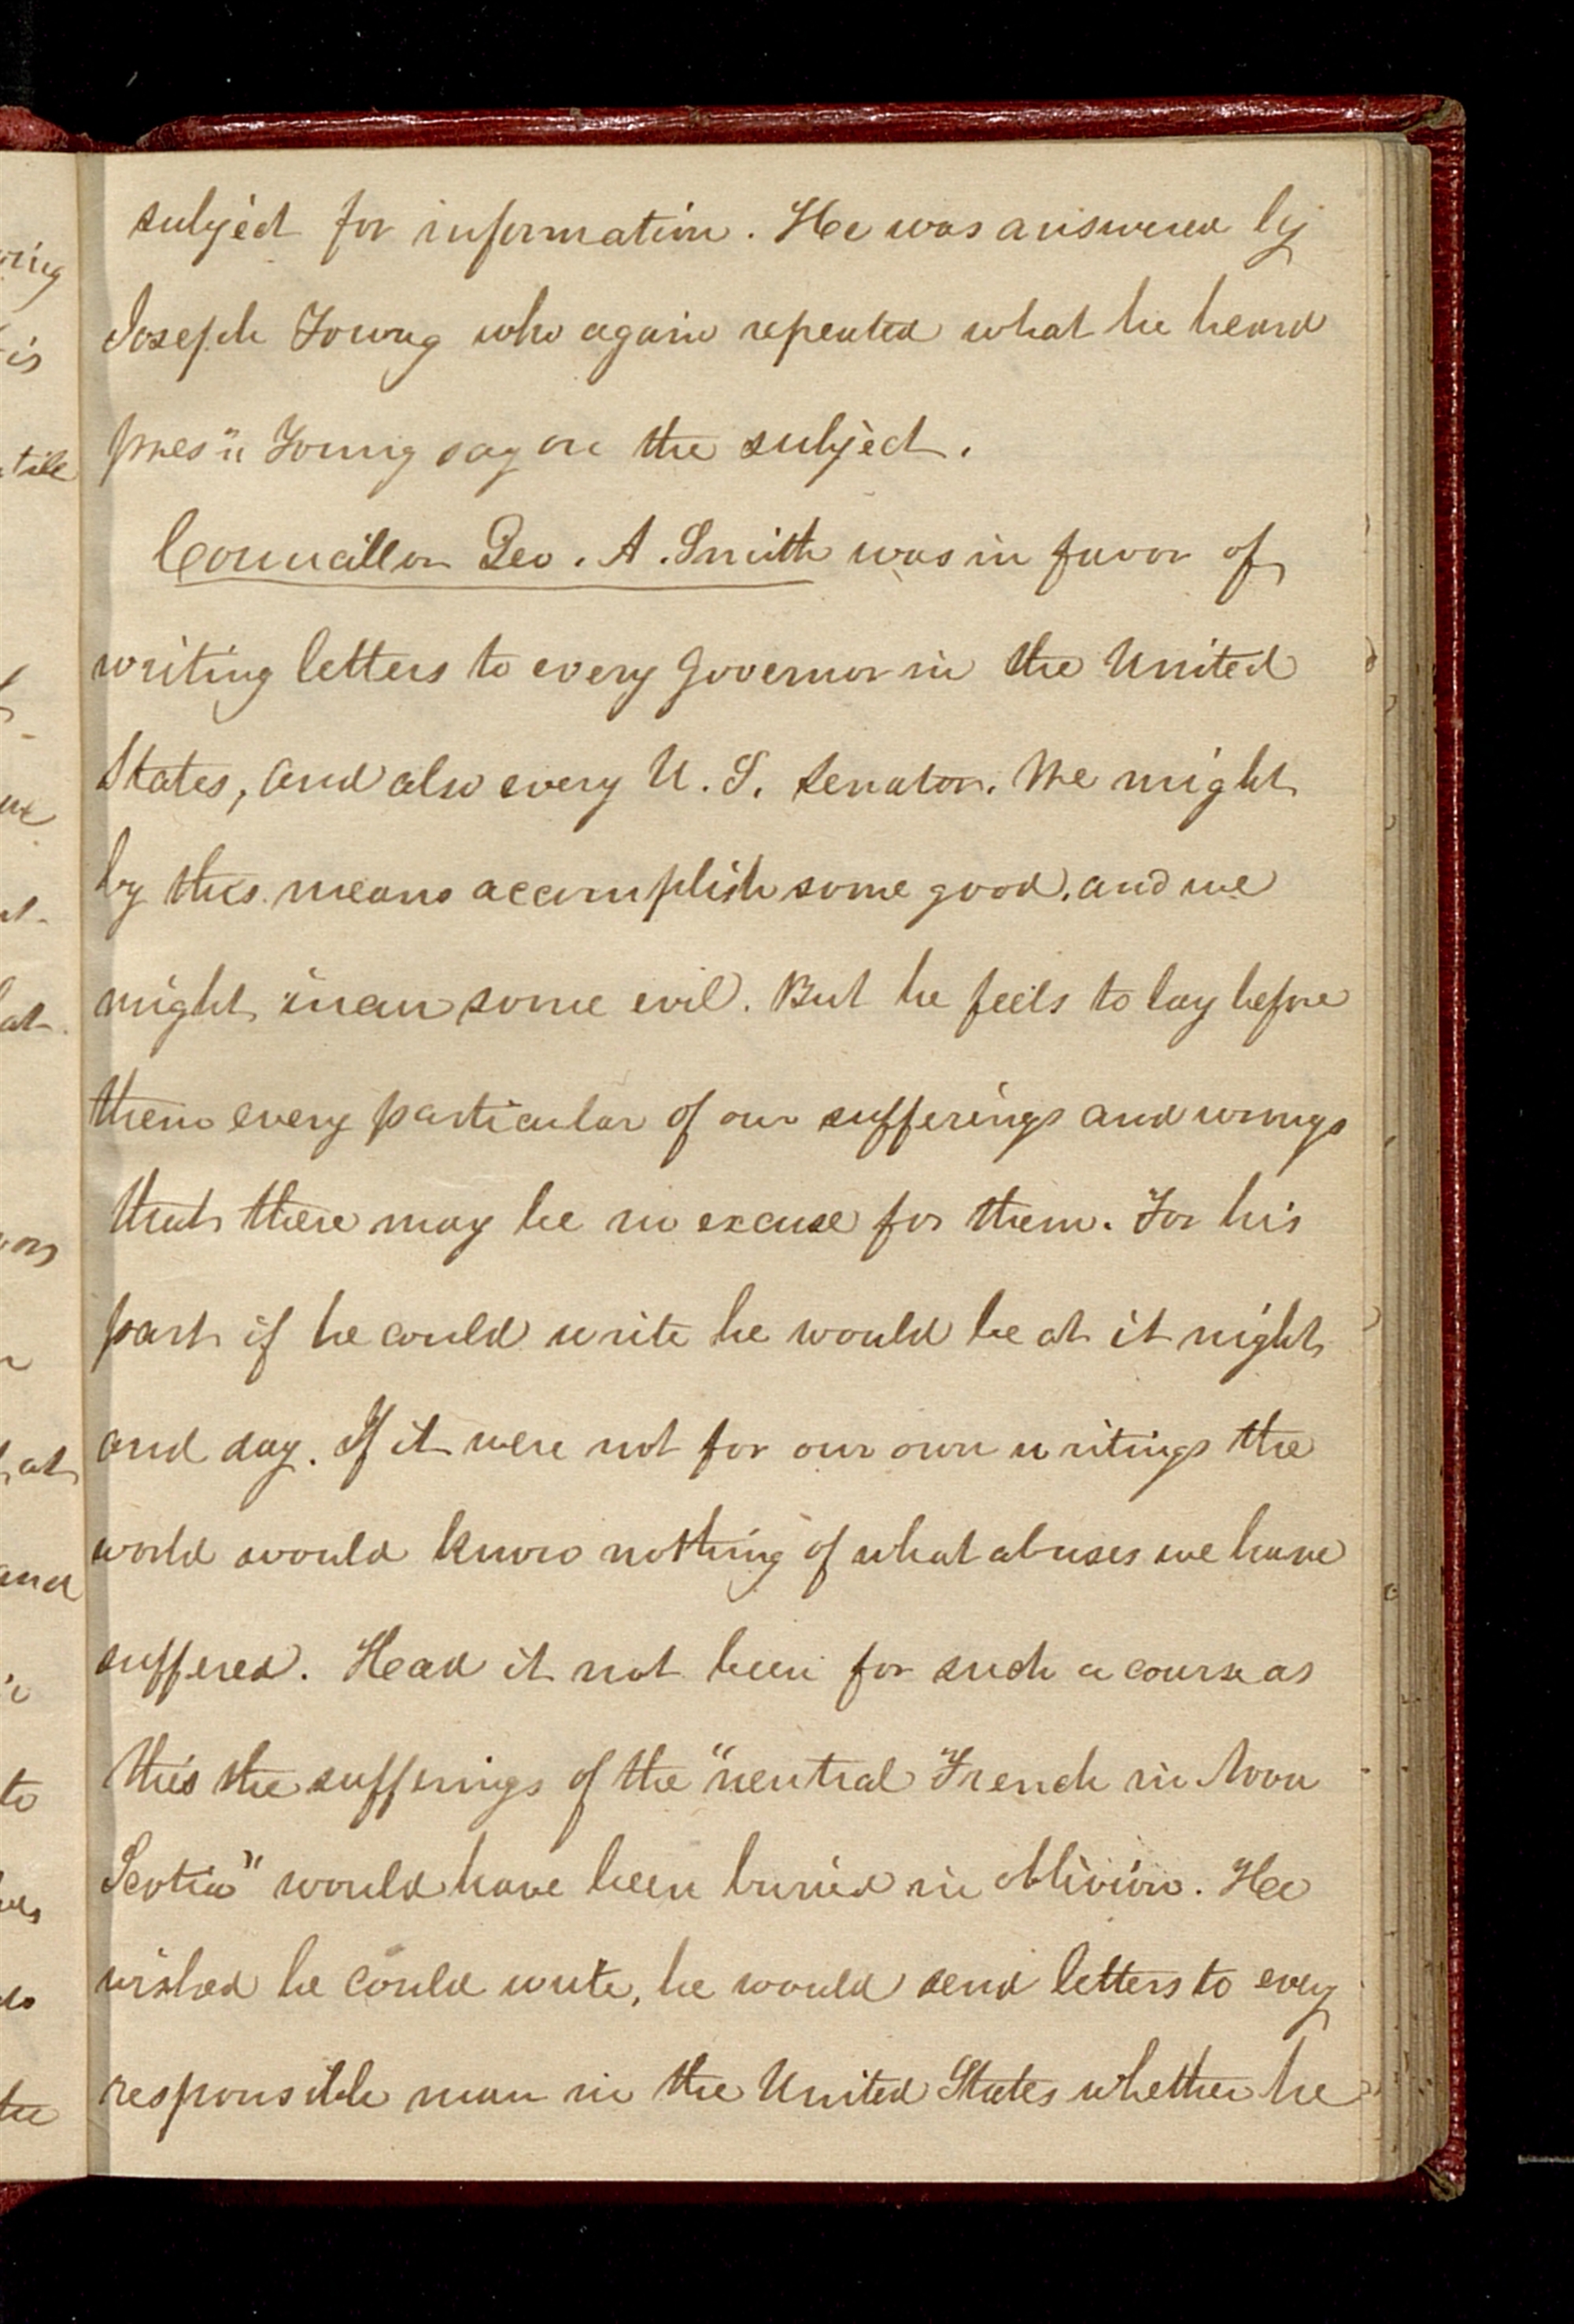 subject for information. He was answered by
Joseph Young who again repeated what he heard
pres.t Young say on the subject.
Councillor Geo. A. Smith was in favor of
writing letters to every Governor in the United
States, and also every U. S. Senator. We might
by this means accomplish some good, and we
might incur some evil. But he feels to lay before
them every particular of our sufferings and wrongs
that there may be no excuse for them. For his
part if he could write he would be at it night
and day. If it were not for our own writings the
world would know nothing of what abuses we have
suffered. Had it not been for such a course as
this the sufferings of the "neutral French in Nova
Scotia" would have been buried in oblivion. He
wished he could write, he would send letters to every
responsible man in the United States whether he